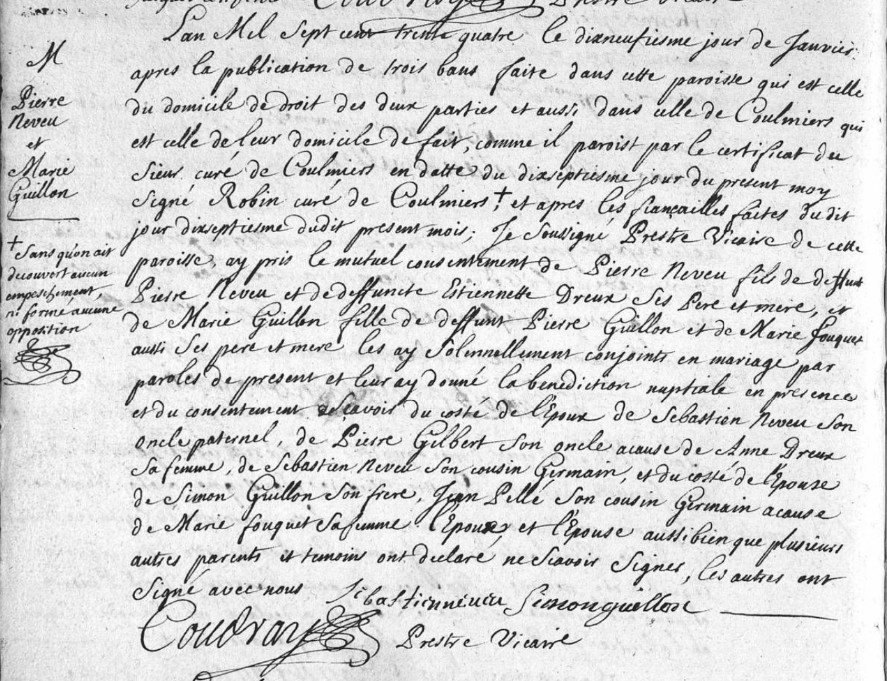 Prestre Vicaire
Lan Mel Sept cent trente quatre le dixneufiesme jour de Janvier
apres la publication de trois bans faite dans cette paroisse qui est celle
du domicile de droit des deux parties et aussi dans celle de Coulmiers qui
est celle de leur domicile de fait, comme il paroist par le certificat du
Sieur curé de Coulmiers en datte du dixseptiesme jour du present moy
Signé Robin curé de Coulmiers + et apres les fiançailles faites dudit
jour dixseptiesme dudit present mois; Je Soussigné Prestre Vicaire de cette
paroisse, ay pris le mutuel consentement de Pierre Neveu fils de deffunt
Pierre Neveu et de deffuncte Estiennette Dreux Ses Pere et mere, et
de Marie Guillon fille de deffunt Pierre Guillon et de Marie fouquet
aussi Ses pere et mere les ay Solennellement conjoints en mariage par
paroles de present et leur ay donné la benediction nuptiale en presence
et du consentement Scavoir du costé de l'Epoux de Sebastien Neveu Son
oncle paternel, de Pierre Gilbert Son oncle acause de Anne Dreux
Sa femme, de Sebastien Neveu Son cousin Germain, et du costé de l'Epouse
de Simon Guillon Son frere, Jean Pellé Son cousin Germain acause
de Marie fouquet Sa femme l'Epoux et l'Epouse aussi bien que plusieurs
autres parents et temoins ont declaré ne Scavoir Signer, les autres ont
Signé avec nous Sebastienneveu Simonguillon
Coudray Prestre Vicaire
M
Pierre
Neveu
et
Marie
Guillon
+ Sans qu'on ait
decouvert aucun
empeschement,
ni formé aucune
opposition